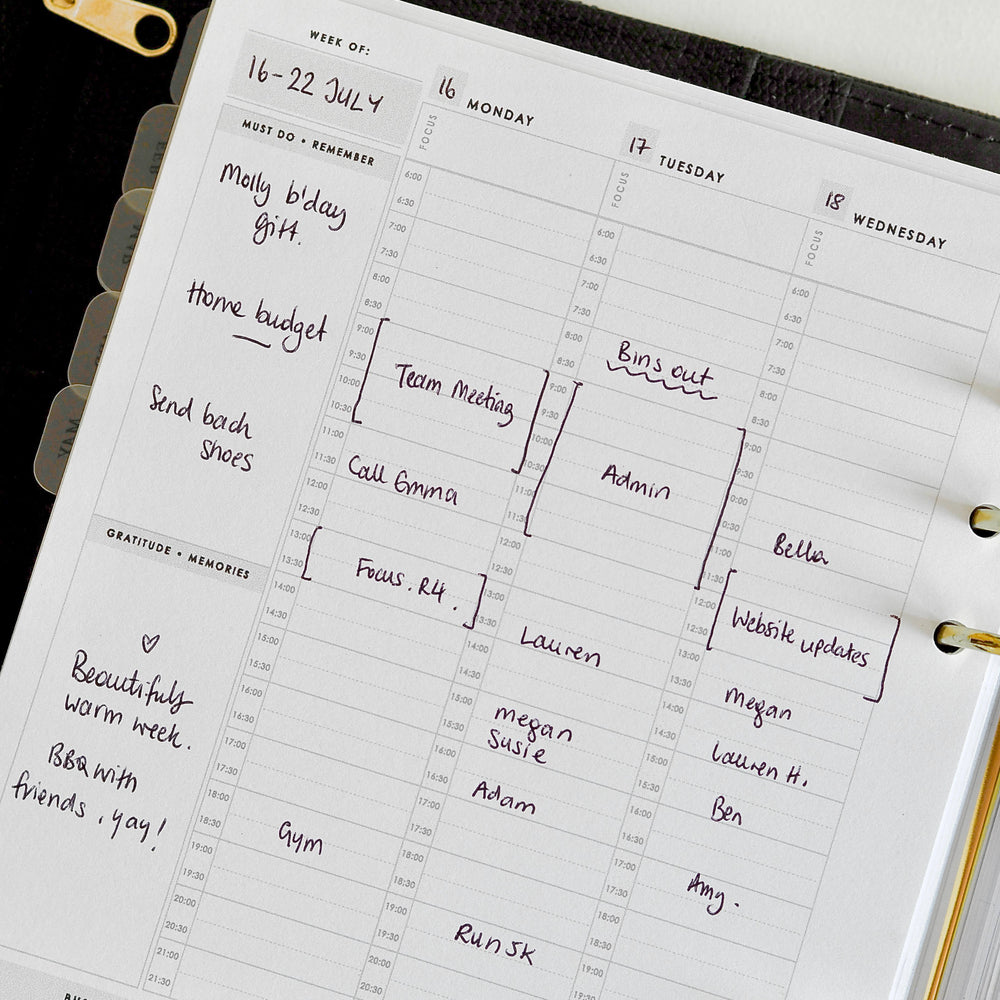 WEEK OF:
16-22 JULY
MUST DO • REMEMBER
Molly b'day
gift.
Home budget
Send back
shoes
GRATITUDE • MEMORIES
♡
Beautifuly
warm week.
BBQ with
friends, yay!
16 MONDAY
FOCUS
6:00
6:30
7:00
7:30
8:00
8:30
9:00
9:30
10:00
10:30
11:00
11:30
12:00
12:30
13:00
13:30
14:00
14:30
15:00
15:30
16:00
16:30
17:00
17:30
18:00
18:30
19:00
19:30
20:00
20:30
21:00
21:30
Team Meeting
Call Emma
Focus. R4.
Gym
17 TUESDAY
FOCUS
6:00
6:30
7:00
7:30
8:00
8:30
9:00
9:30
10:00
10:30
11:00
11:30
12:00
12:30
13:00
13:30
14:00
14:30
15:00
15:30
16:00
16:30
17:00
17:30
18:00
18:30
19:00
19:30
20:00
20:30
Bins out
Admin
Lauren
Megan
Susie
Adam
Run 5K
18 WEDNESDAY
FOCUS
6:00
6:30
7:00
7:30
8:00
8:30
9:00
9:30
0:00
0:30
1:00
11:30
12:00
12:30
13:00
13:30
14:00
14:30
15:00
15:30
16:00
16:30
17:00
17:30
18:00
18:30
19:00
Bella
Website updates
Megan
Lauren H.
Ben
Amy.
MAY